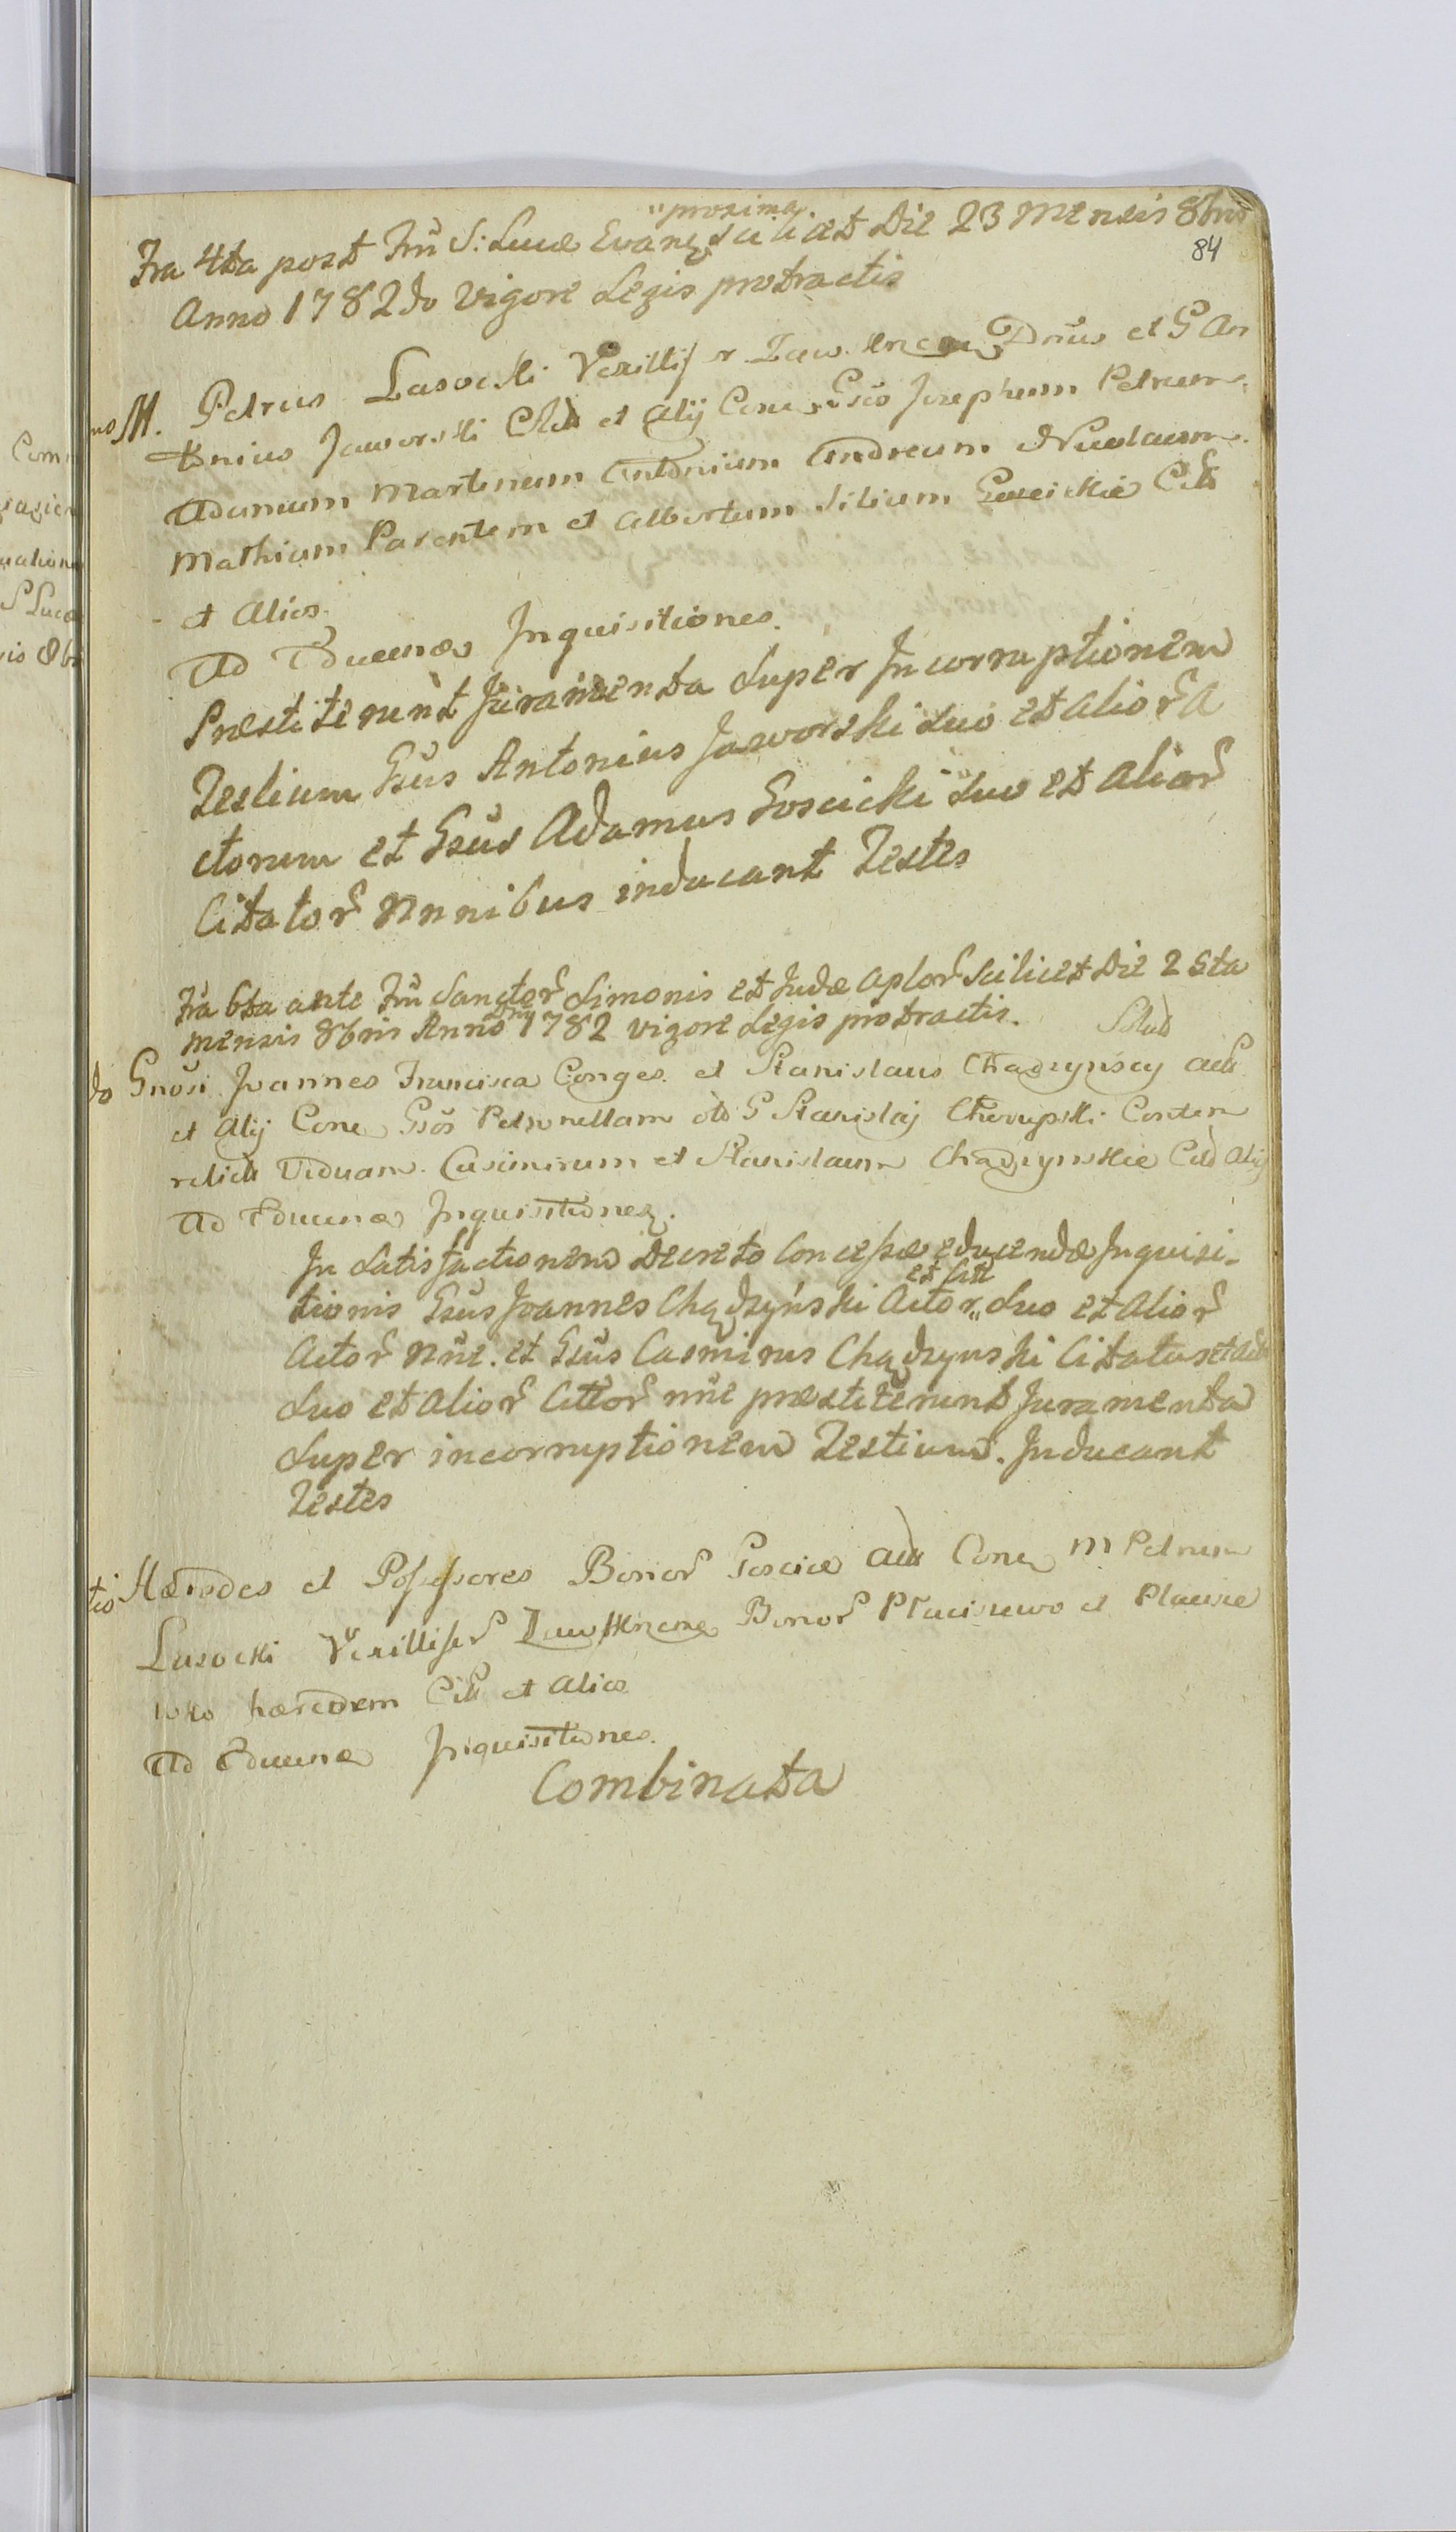 proxima
Fra 4ta post Fm S: Lucæ Evang scilicet Die 23 Mensis 8bris
84
Anno 1782do vigore Legis protractis
M. Petrus Lasocki Vexillifer Zawskrcen Dnus et G An
tonius Jaworski et alij Cone Gsos Josephum Petrum
Adamum Martinum Antonium Andream Nicolaum
Mathiam Parentem et Albertum Filium Goscickie Citt
et Alios
Ad Educenas Inquisitiones.
Præstiterunt Juramenta super Incorruptionem
Testium Gsus Antonius Jaworski suo et alior A
ctorum et Gsus Adamus Goscicki suo et alior
Citator Nnnibus inducant Testes
Fra 6ta ante Fm Sanctor Simonis et Judæ Aplor scilicet Die 25ta
mensis 8bris Anno Dni 1782 vigore Legis protractis. Solut
do Gnosi Joannes Francisca Conges et Stanislaus Chądzynscy
et Alij Cone Gsos Petronellam G Stanislaj Conten
relict Viduam Casimirum et Stanislaum Chądzynskie Citt Alij
Ad Educenas Inquisitiones.
In satisfactionem Decreto Concessæ educendæ Inquisi-
tionis Gsus Joannes Chądzyński Actor et Citt suo et Alior
Actor nne. et Gsus Casmirus Chądzynski Citatus et Actor
suo et Alior Cittor nne præstiterunt Juramenta
super incorruptionem Testium. Inducant
Testes
tio Hæredes et Possessores Bonor Goscice Cone M Petrum
Lasocki Vexillifer Zawskrcen Bonor et
wko hæredem Citt et Alios
Ad Educenas Inquisitiones.
Combinata